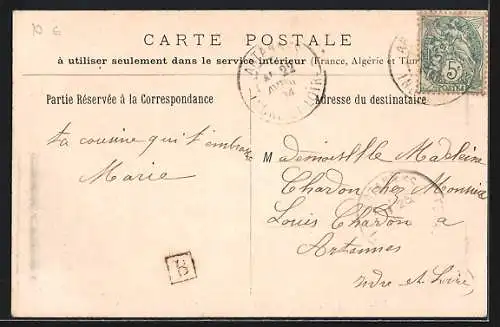 10 €
CARTE POSTALE
à utiliser seulement dans le service intérieur (France, Algérie et Tun
Partie Réservée à la Correspondance
Adresse du destinataire
22
5c
POSTES
ta cousine qui t'embrasse
Marie
Mademoiselle Madeleine
Chardon chez Monsieur
Louis Chardon a
Artannes
Indre et Loire